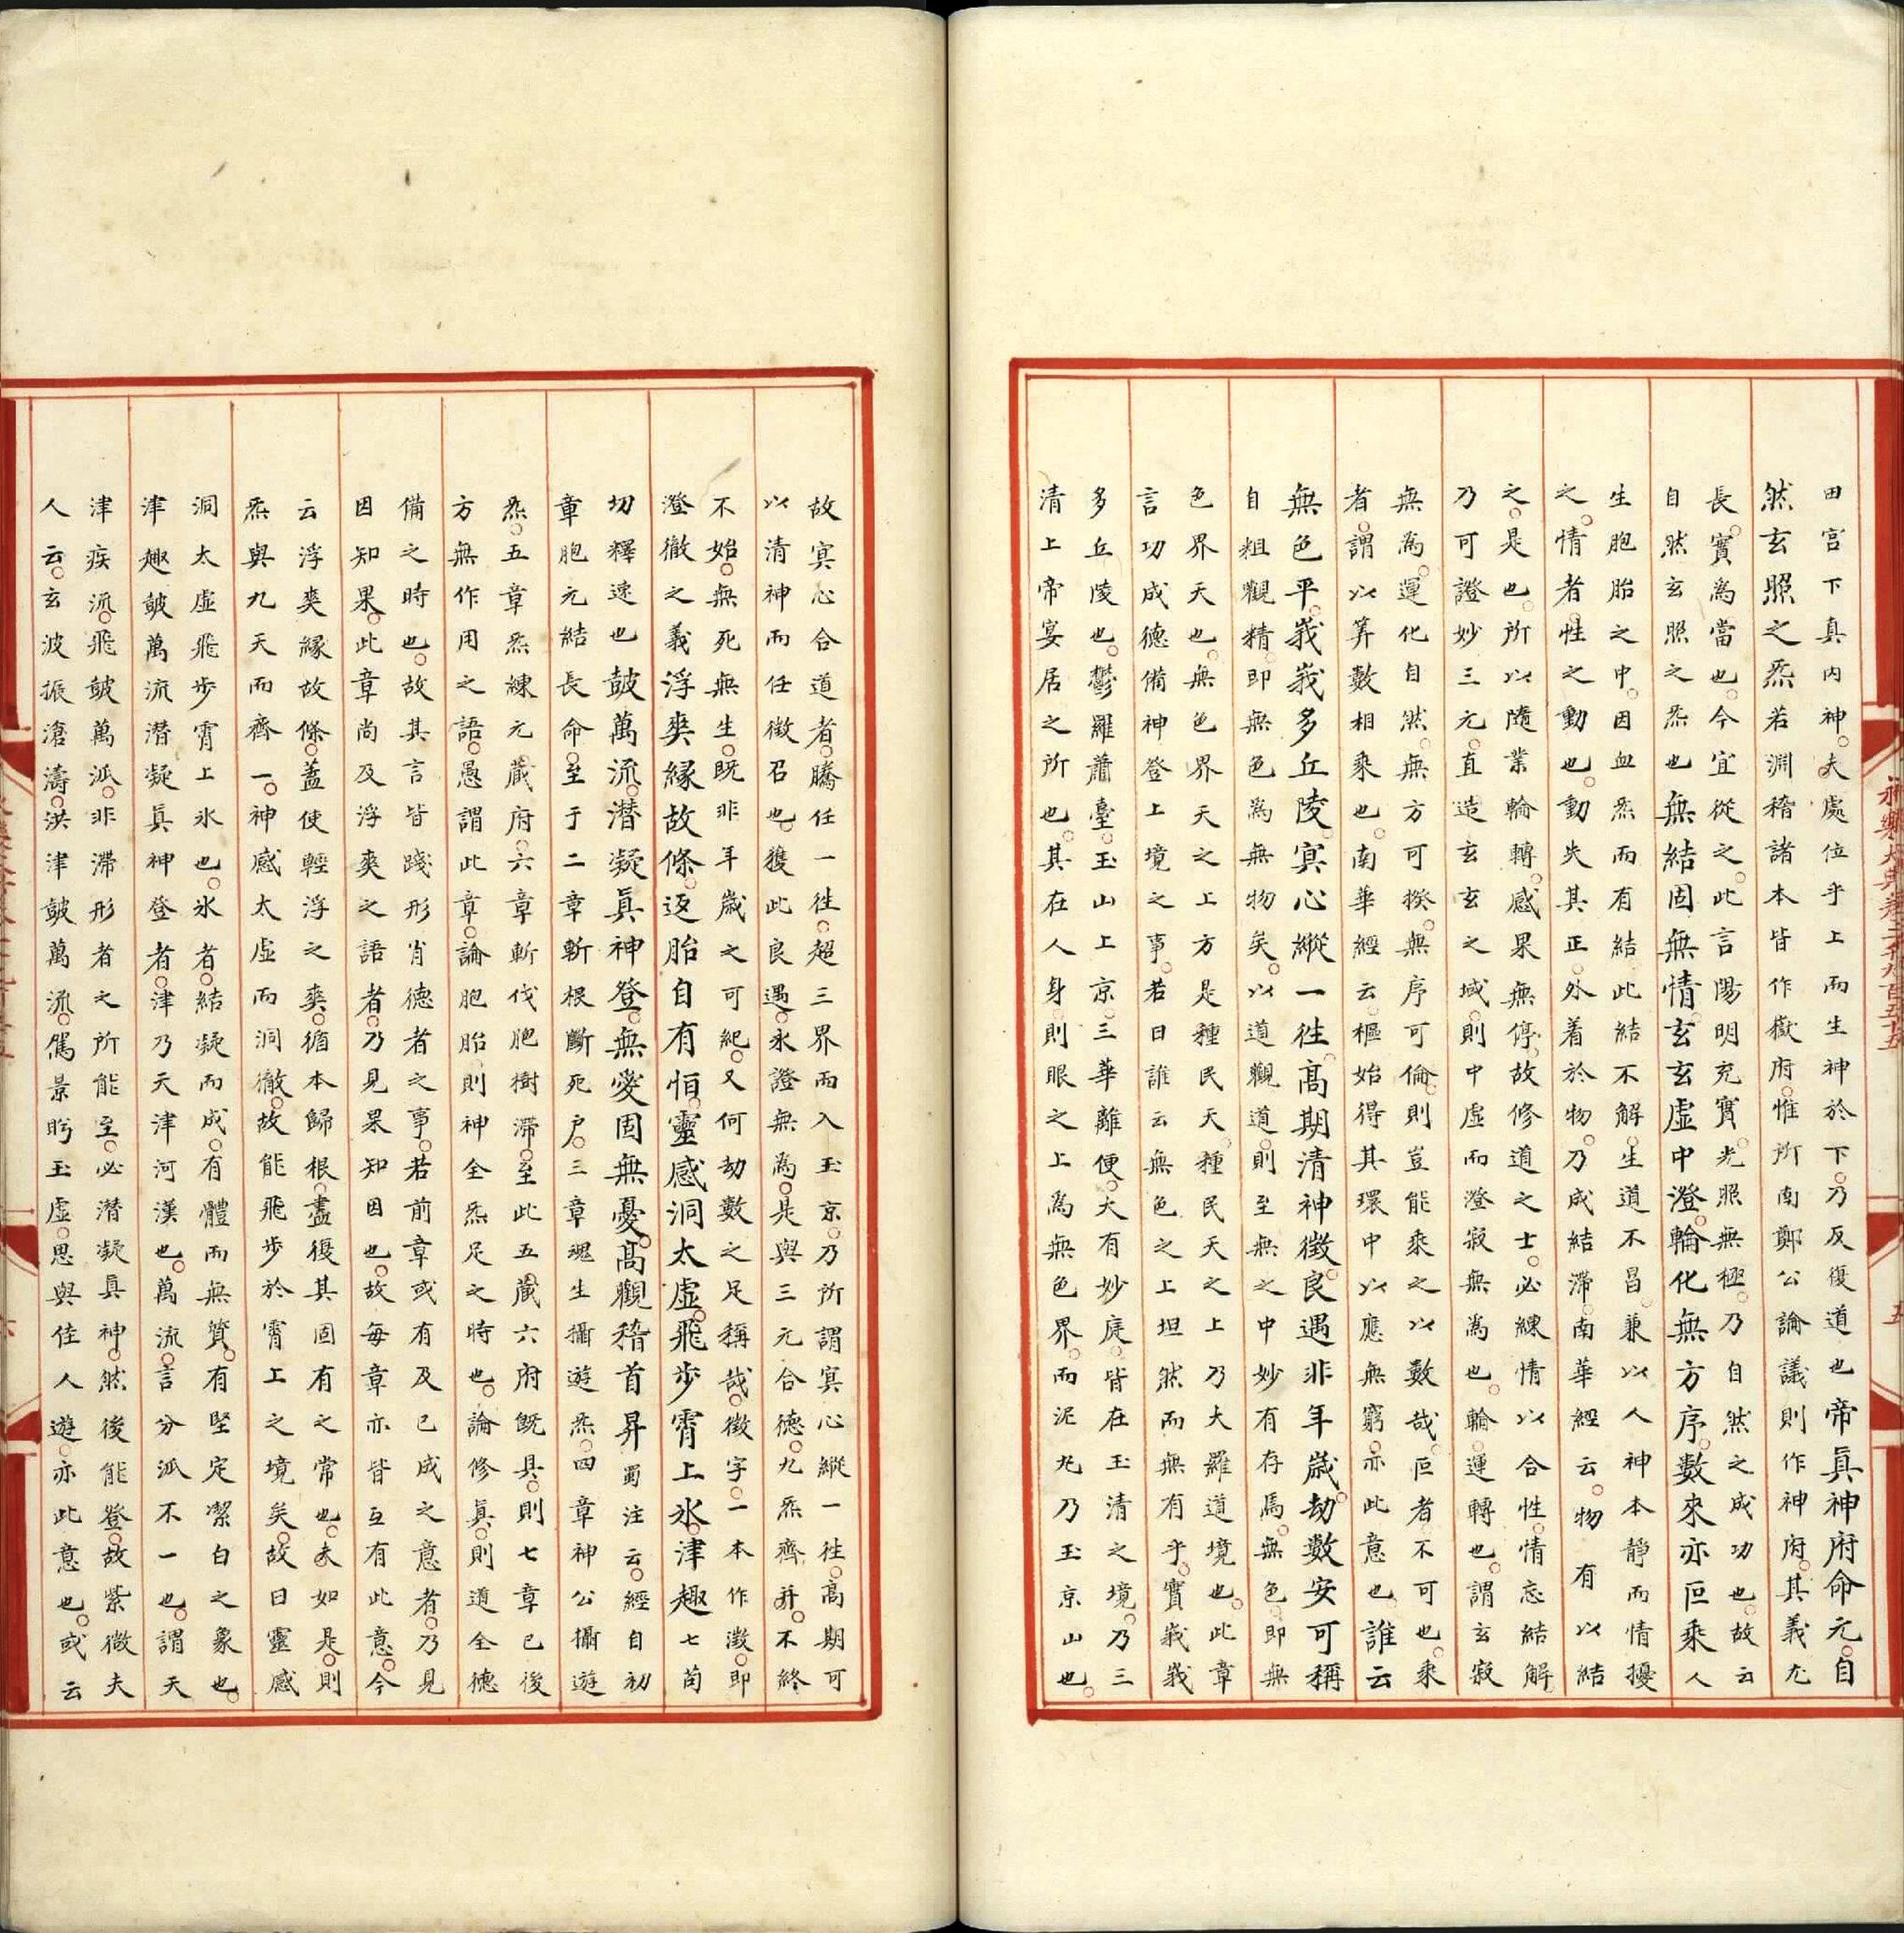 田宮下真內神夫處位乎上而生神於下乃反復道也帝真神府命元自
然玄照之炁若淵稽諸本皆作嶽府惟所南鄭公論議則作神府其義尤
長實為當也今宜從之此言陽明充實光照無極乃自然之成功也故云
自然玄照之炁也無結固無情玄玄虛中澄輪化無方序數來亦叵乘人
生胞胎之中因血炁而有結此結不解生道不昌兼以人神本靜而情擾
之情者性之動也動失其正外着於物乃成結滯南華經云物有以結
之是也所以隨業輪轉感果無停故修道之士必練情以合性情忘結解
乃可證妙三元直造玄玄之域則中虛而澄寂無為也輪運轉也謂玄寂
無為運化自然無方可揆無序可倫則豈能乘之以數哉叵者不可也乘
者謂以筭數相乘也南華經云樞始得其環中以應無窮亦此意也誰云
無色平峩峩多丘陵冥心縱一徃高期清神徵良遇非年歲劫數安可稱
自粗觀精即無色為無物矣以道觀道則至無之中妙有存焉無色即無
色界天也無色界天之上方是種民天種民天之上乃大羅道境也此章
言功成德備神登上境之事若日誰云無色之上坦然而無有乎實峩峩
多丘陵也鬱羅蕭臺玉山上京三華離便大有妙庭皆在玉清之境乃三
清上帝宴居之所也其在人身則眼之上為無色界而泥丸乃玉京山也
故冥心合道者騰任一徃超三界而入玉京乃所謂冥心縱一徃高期可
以清神而任徵召也獲此良遇永證無為是與三元合德九炁齊并不終
不始無死無生既非年歲之可紀又何劫數之足稱哉徵字一本作澂即
澄徹之義浮爽緣故條返胎自有恒靈感洞太虛飛步霄上氷津趣七萄
切釋速也皷萬流潜凝真神登無愛固無憂高觀稽首昇蜀注云經自初
章胞元結長命至于二章斬根斷死戶三章魂生攝遊炁四章神公攝遊
炁五章炁練元藏府六章斬伐胞樹滯至此五藏六府旣具則七章已後
方無作用之語愚謂此章論胞胎則神全炁足之時也論修真則道全德
備之時也故其言皆踐形肖德者之事若前章或有及已成之意者乃見
因知果此章尚及浮爽之語者乃見果知因也故每章亦皆互有此意今
云浮爽緣故條蓋使輕浮之爽循本歸根盡復其固有之常也夫如是則
炁與九天而齊一神感太虛而洞徹故能飛步於霄上之境矣故曰靈感
洞太虛飛步霄上氷也氷者結凝而成有體而無質有堅定潔白之象也
津趣皷萬流潜凝真神登者津乃天津河漢也萬流言分派不一也謂天
津疾流飛皷萬派非滯形者之所能至必潜凝真神然後能登故紫微夫
人云玄波振滄濤洪津皷萬流駕景眄玉虛思與佳人遊亦此意也或云
永樂大典卷二千九百五十五
五